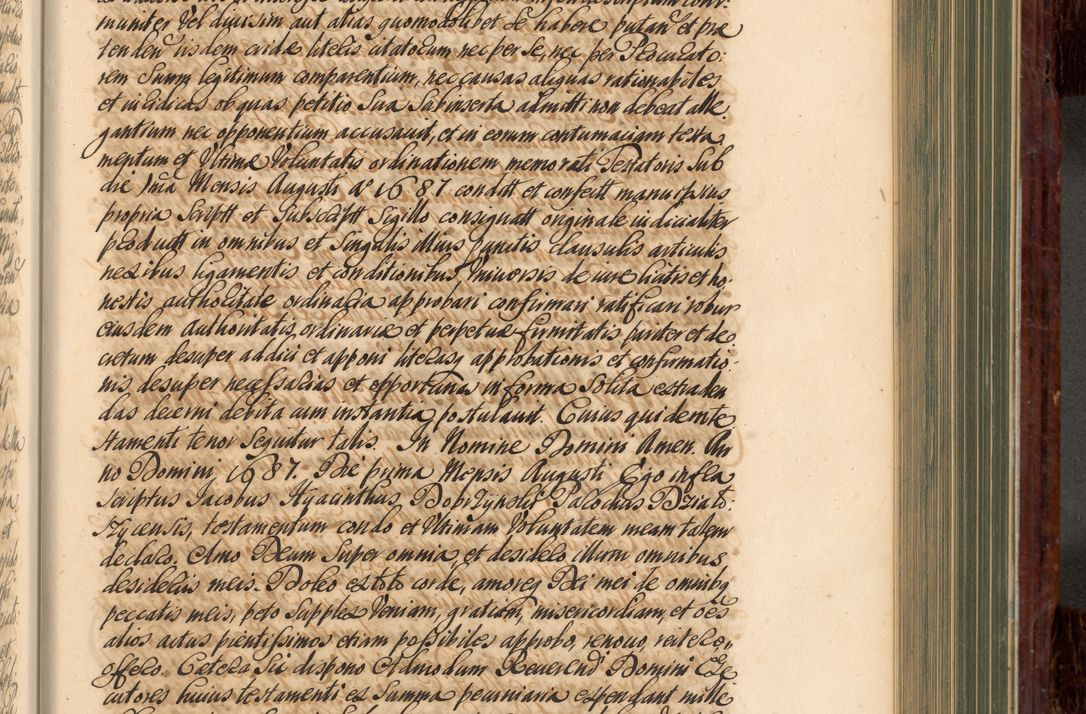 muniter vel divisim aut alias quomodolibet se habere putan et præ
tenden iisdem cridæ litelis citatorum nec per se, nec per Procurato:
rem suum legitimum comparentium, nec causas aliquas rationabiles
et iuridicas ob quas petitio sua subinserta admitti non debeat alle
gantium nec opponentium accusavit, et in eorum contumaciam testa
mentum et Ultimæ Voluntatis ordinationem memorati Testatoris sub
die 1ma Mensis Augusti Ao 1687 condit et confect manu ipsius
propria script et subscript sigillo consignatt originale iudicialiter
product in omnibus et singulis suis punctis clausulis articulis
nexibus ligamentis et conditionibus Universis de iure licitis et ho
nestis authoritate ordinaria approbari confirmari ratificari robur
eiusdem authoritatis ordinariæ et perpetuæ firmitatis pariter et de
cretum desuper addici et apponi literasq approbationis et confirmatio
nis desuper necessarias et opportunas in forma solita extraden
das decerni debita cum instantia postulavit. Cuius quidem te
stamenti tenor sequitur talis. In Nomine Domini Amen. An
no Domini 1687. Die prima Mensis Augusti Ego infra
scriptus Jacobus Hyacinthus Parochus
testamentum condo et Ultimam Voluntatem meam talem
declaro. Amo Deum super omnia, et desidero Illum omnibus
desideriis meis. Doleo ex toto corde, amoreq Dei mei de omnibq
peccatis meis, peto supplex Veniam, gratiam, misericordiam, et oes
alios actus pientissimos etiam possibiles approbo, renovo, reitero,
offero. Cætera sic dispono Admodum Reverendi Domini Exe
cutores huius testamenti ex summa pecuniaria expendant mille